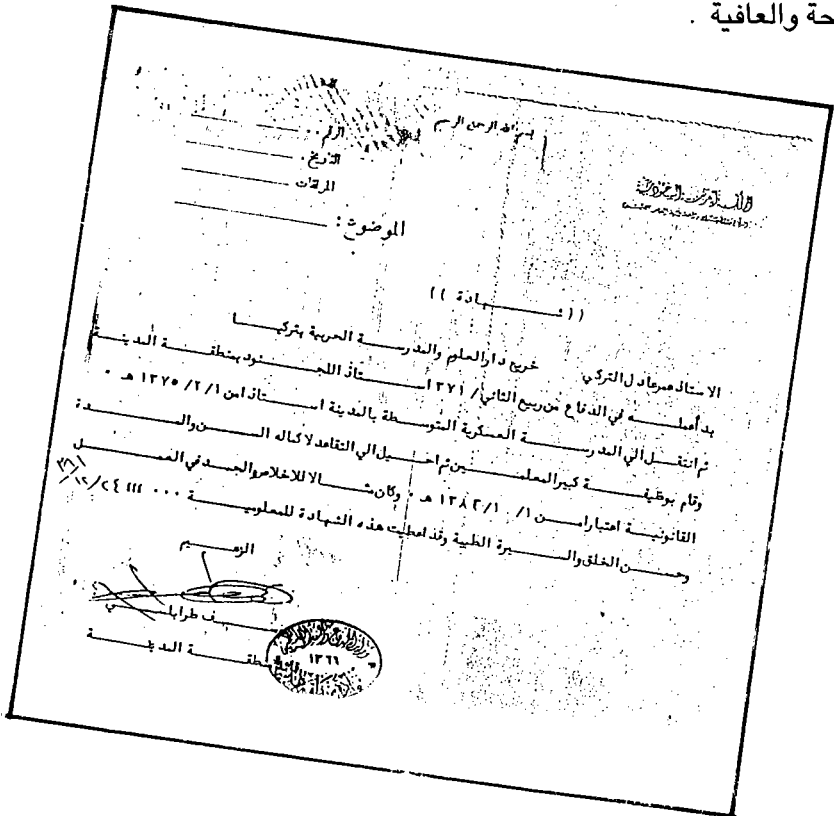 حة والعافية .
بسم الله الرحمن الرحيم
الرقم
التاريخ
المرفقات
الموضوع :
(( شهادة ))
الاستاذ عمر عادل التركي خريج دار العلوم والمدرسة الحربية بتركيا
بدأ عمله في الدفاع من ربيع الثاني / ١٣٧١ استاذ اللجنود بمنطقة المدينة
ثم انتقل الي المدرسة العسكرية المتوسطة بالمدينة استاذا من ١/ ٢/ ١٣٧٥ هـ ٠
وقام بوظيفة كبير المعلمين ثم احيل الي التقاعد لاكماله السن والمدة
القانونية اعتبارا من ١/ ١٠/ ١٣٨٢ هـ ٠ وكان مثالا للاخلاص والجد في العمل
وحسن الخلق والسيرة الطيبة وقد اعطيت هذه الشهادة للمعلومية ٠٠٠
الزعيم
طرابلسي
منطقة المدينة
١٣٦٦